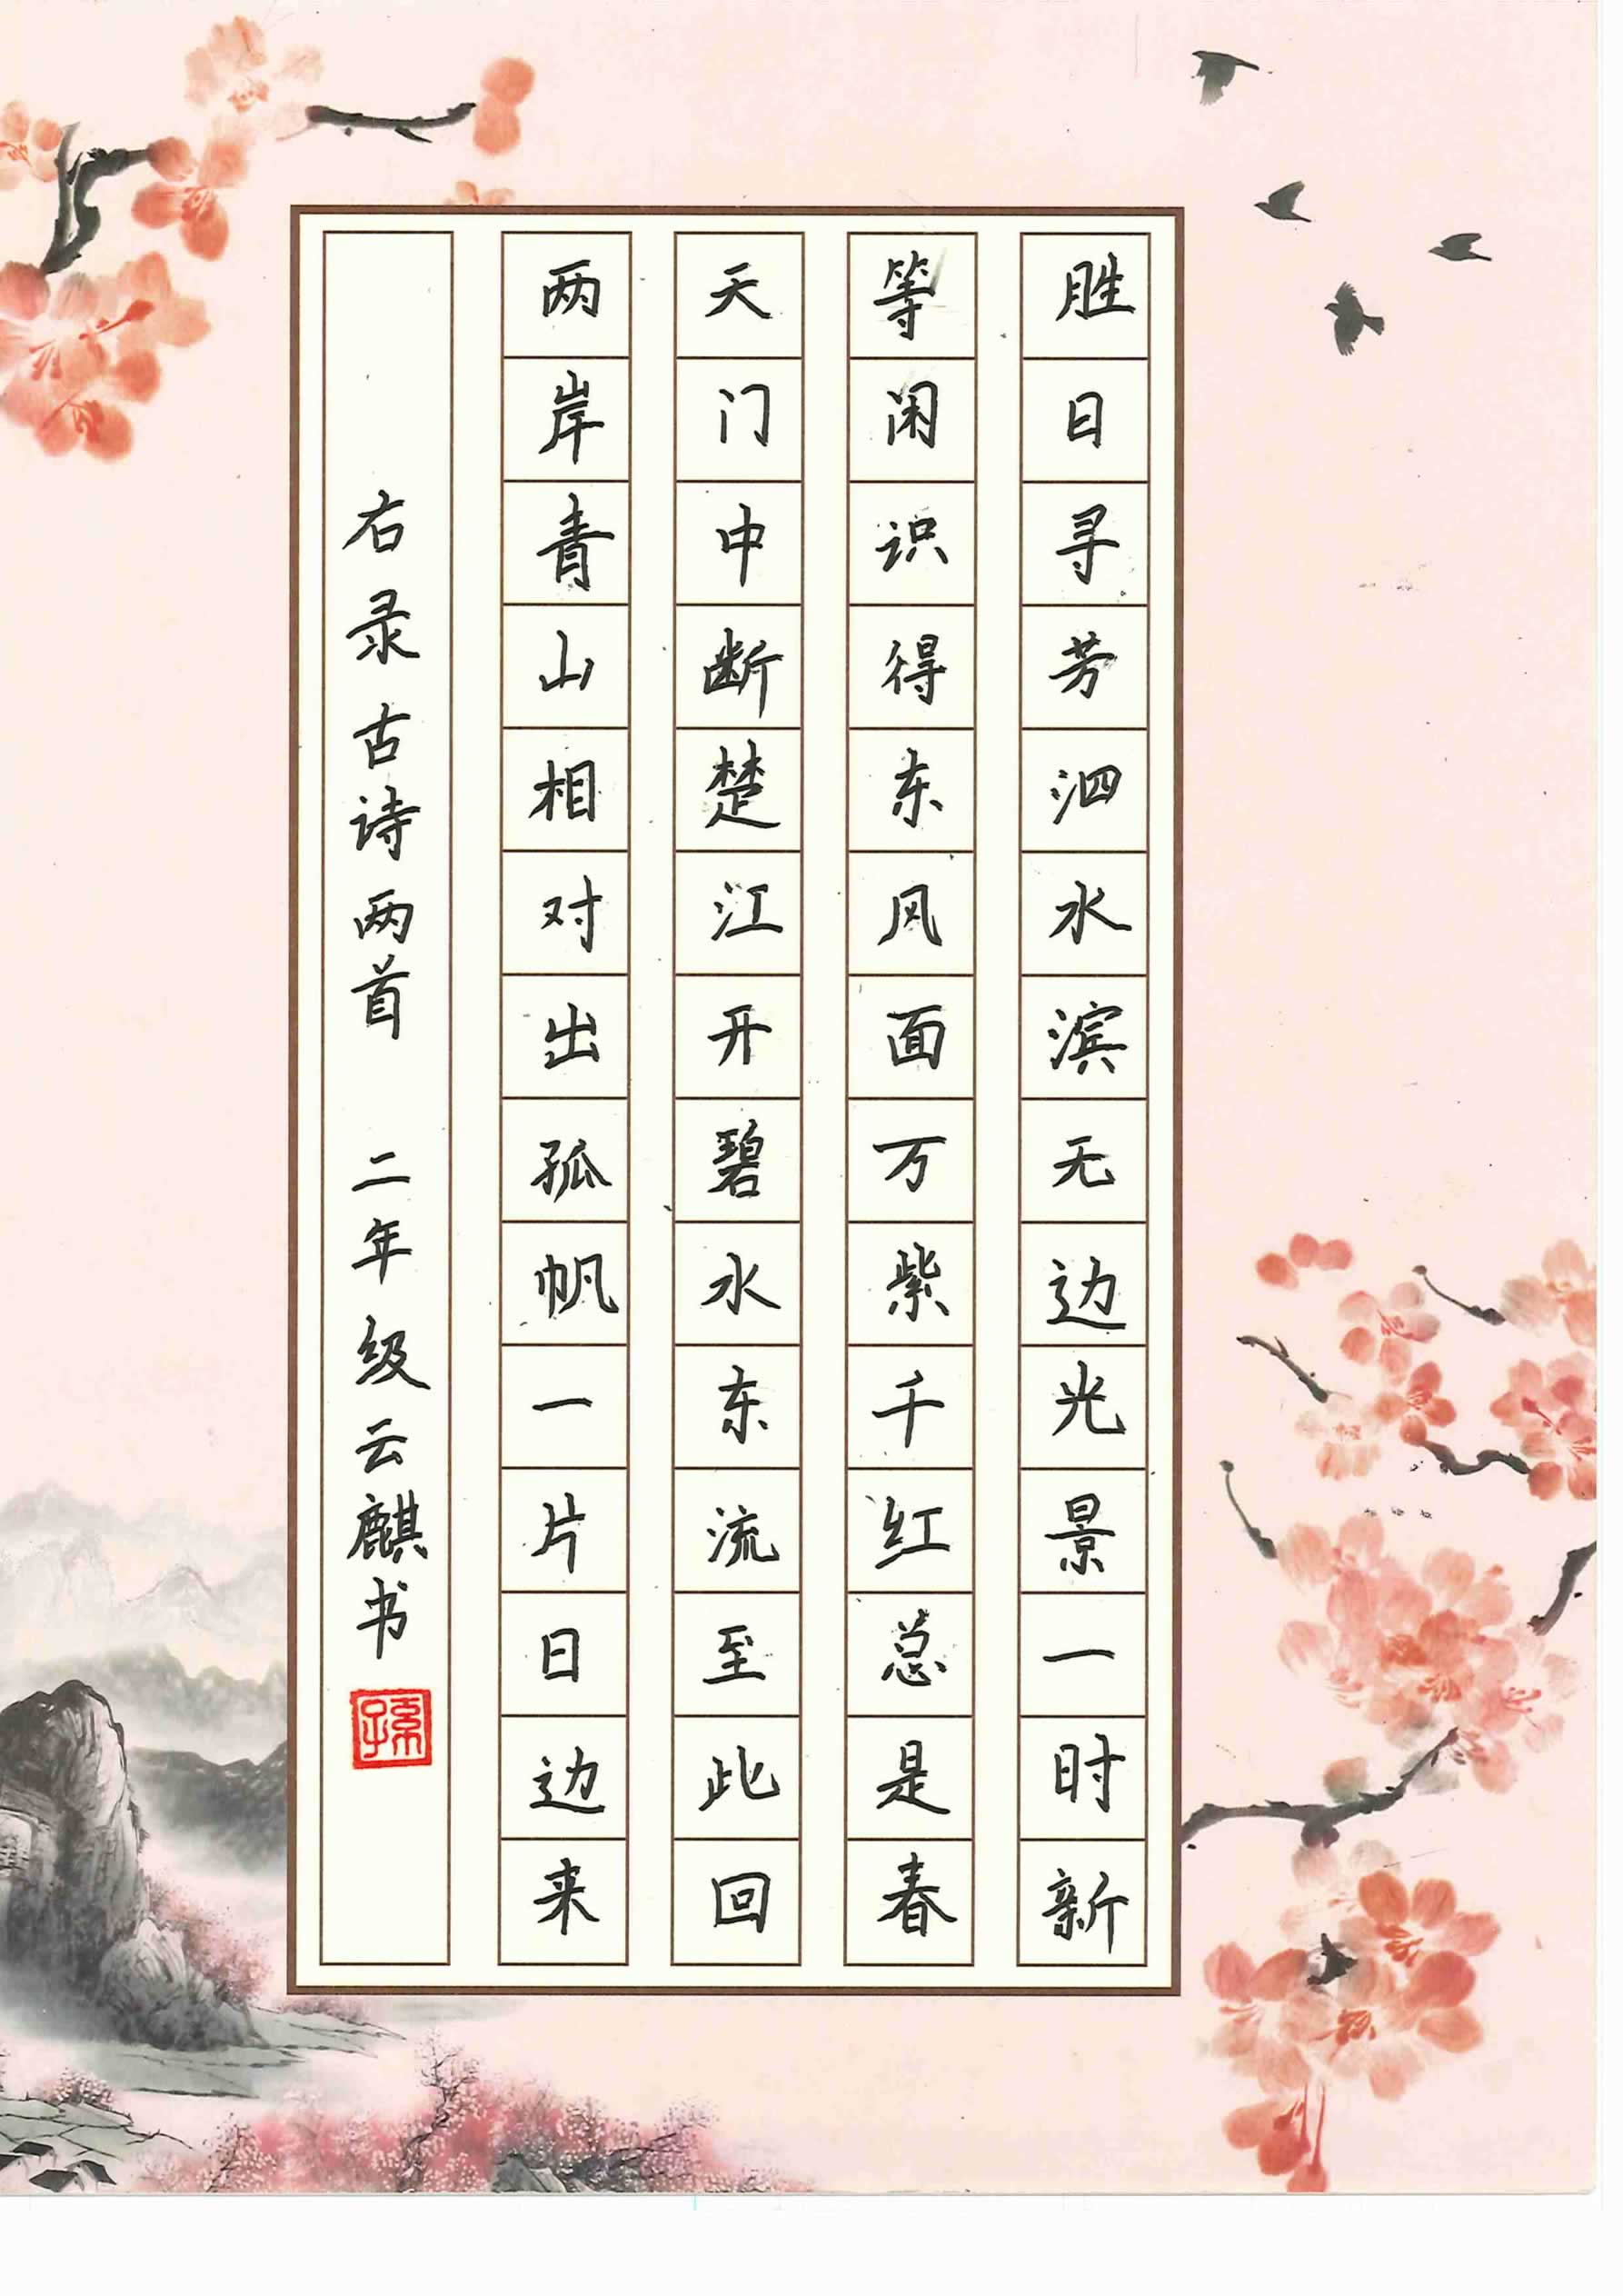 胜日寻芳泗水滨无边光景一时新
等闲识得东风面万紫千红总是春
天门中断楚江开碧水东流至此回
两岸青山相对出孤帆一片日边来
右录古诗两首 二年级云麒书
孫